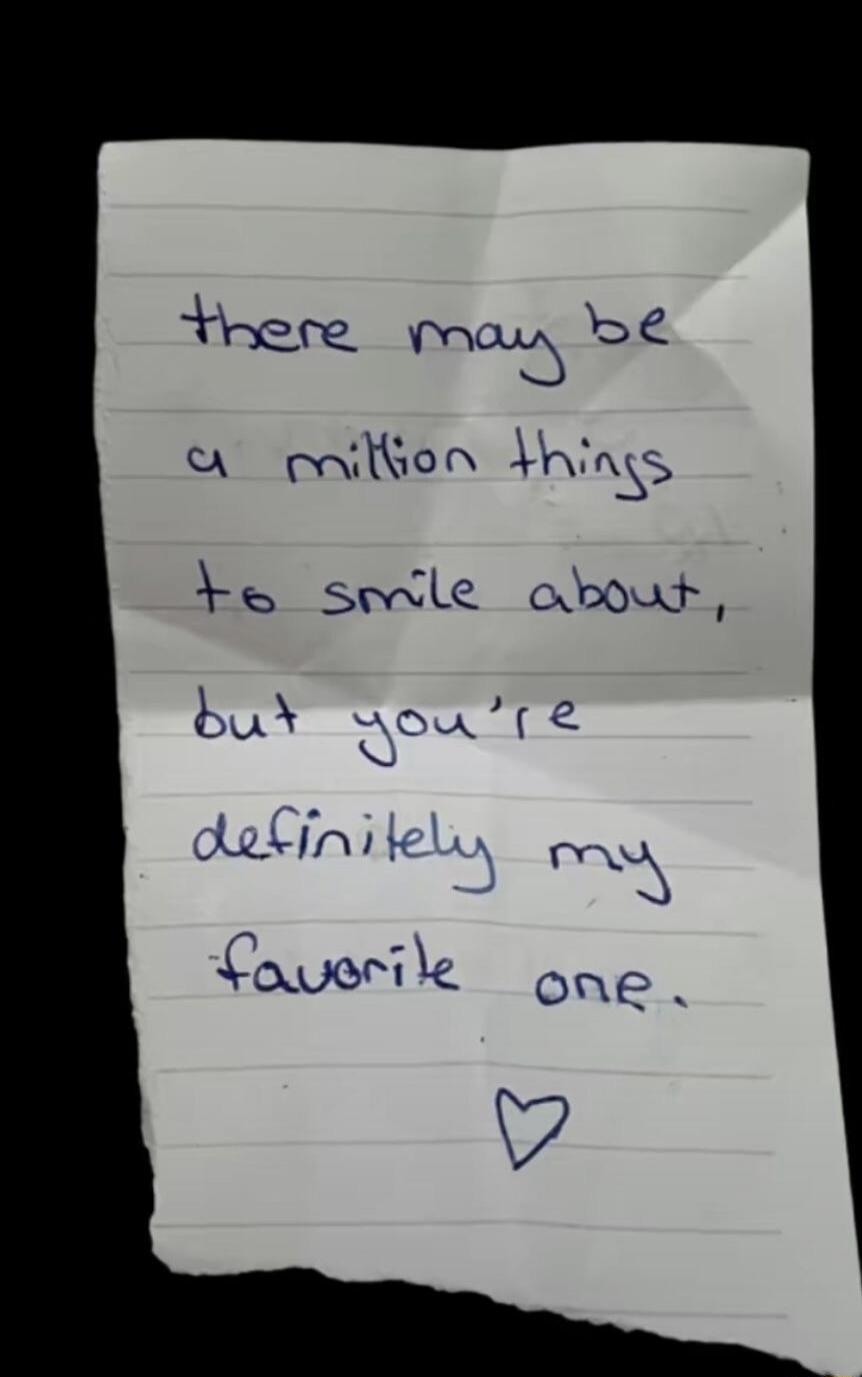 there may be
a million things
to smile about,
but you're
definitely my
favorite one.